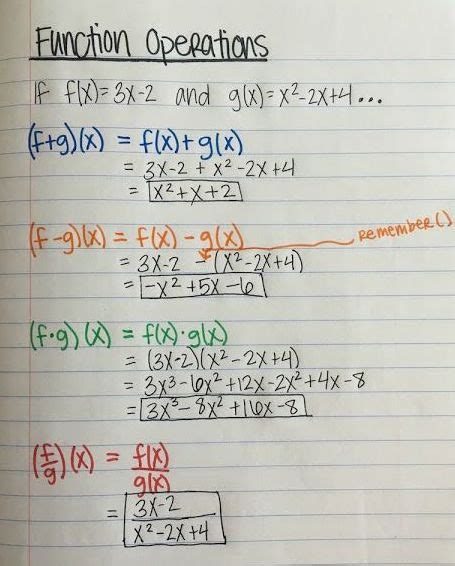 Function Operations
If f(x)=3x-2 and g(x)=x²-2x+4...
(f+g)(x) = f(x)+g(x)
= 3x-2 + x²-2x+4
= x²+x+2
(f-g)(x) = f(x)-g(x) remember()
= 3x-2 -(x²-2x+4)
= -x²+5x-6
(f·g)(x) = f(x)·g(x)
= (3x-2)(x²-2x+4)
= 3x³-6x²+12x-2x²+4x-8
= 3x³-8x²+16x-8
(f/g)(x) = f(x)/g(x)
= 3x-2/x²-2x+4